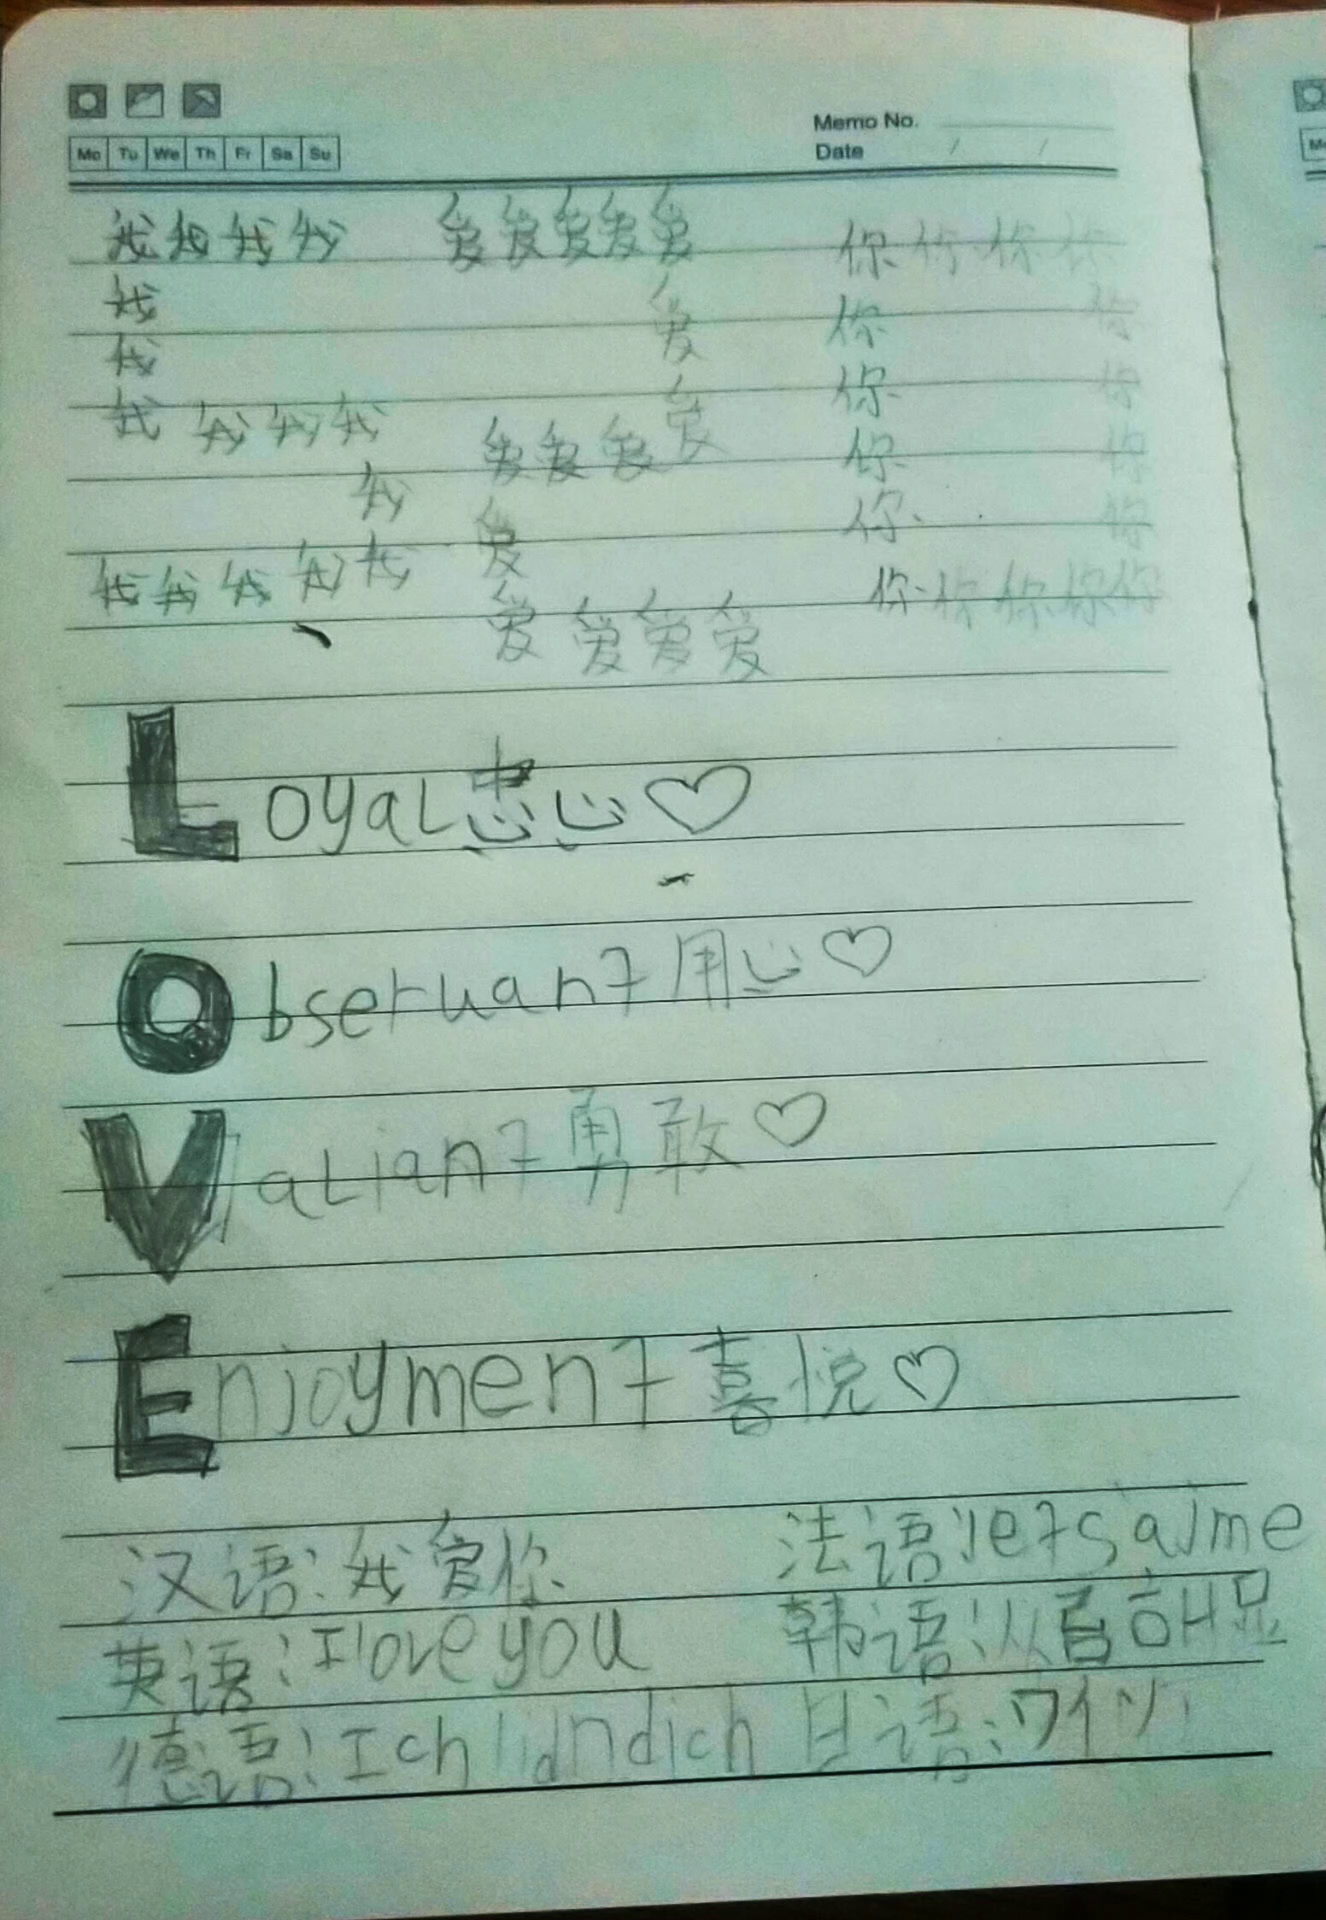 Memo No.
Mo Tu We Th Fr Sa Su
Date / /
我我我我 爱爱爱爱爱 你你你你
我 爱 你 你
我 你 你
我我我我 爱爱爱爱 你 你
我 你 你
我我我我我 爱 你你你你你
爱爱爱爱
Loyal忠心♡
Observant用心♡
Valiant勇敢♡
Enjoyment喜悦♡
汉语:我爱你 法语:
英语:I love you 韩语:
德语:Ich dich 日语: